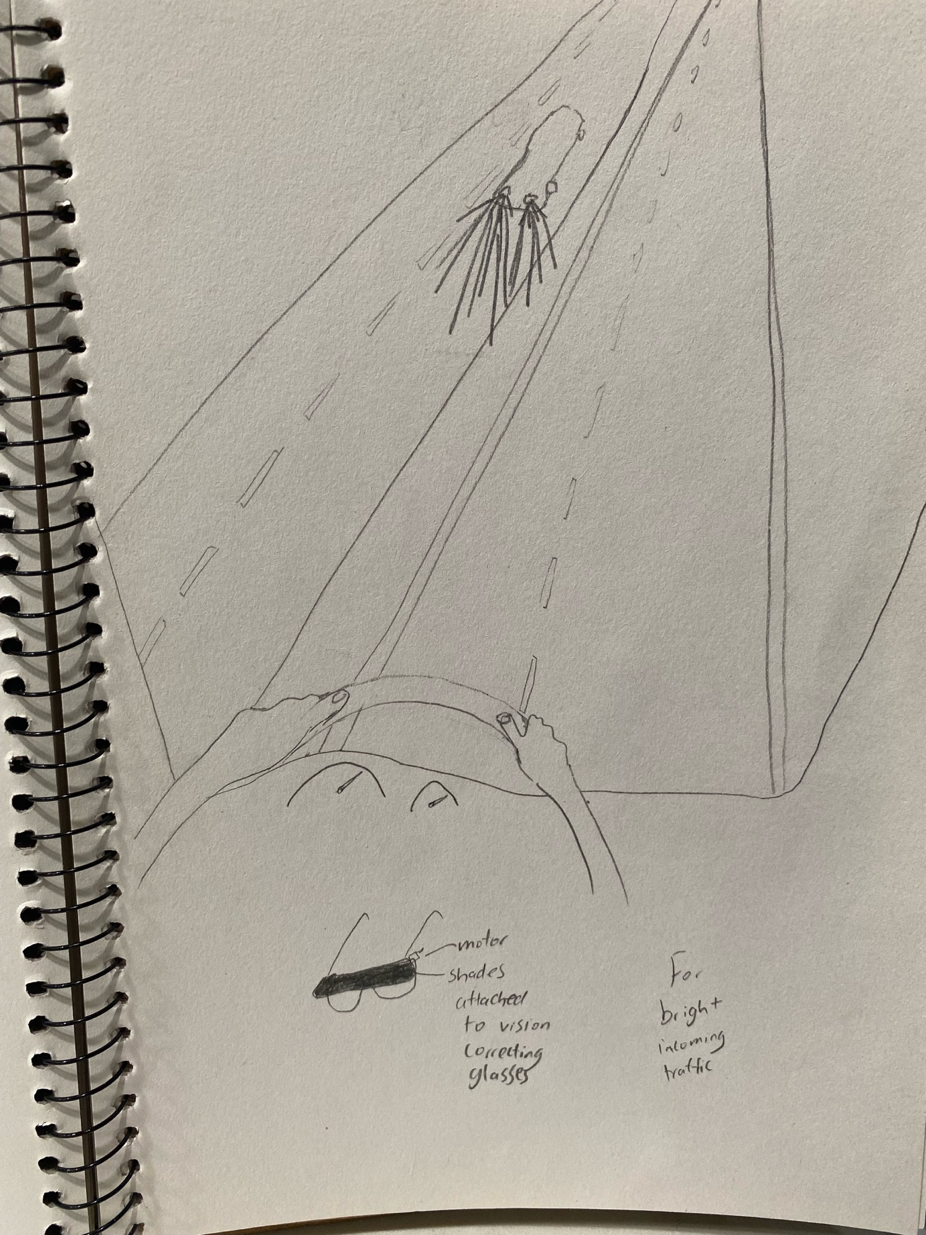 motor
shades
attached
to vision
correcting
glasses
For
bright
incoming
traffic